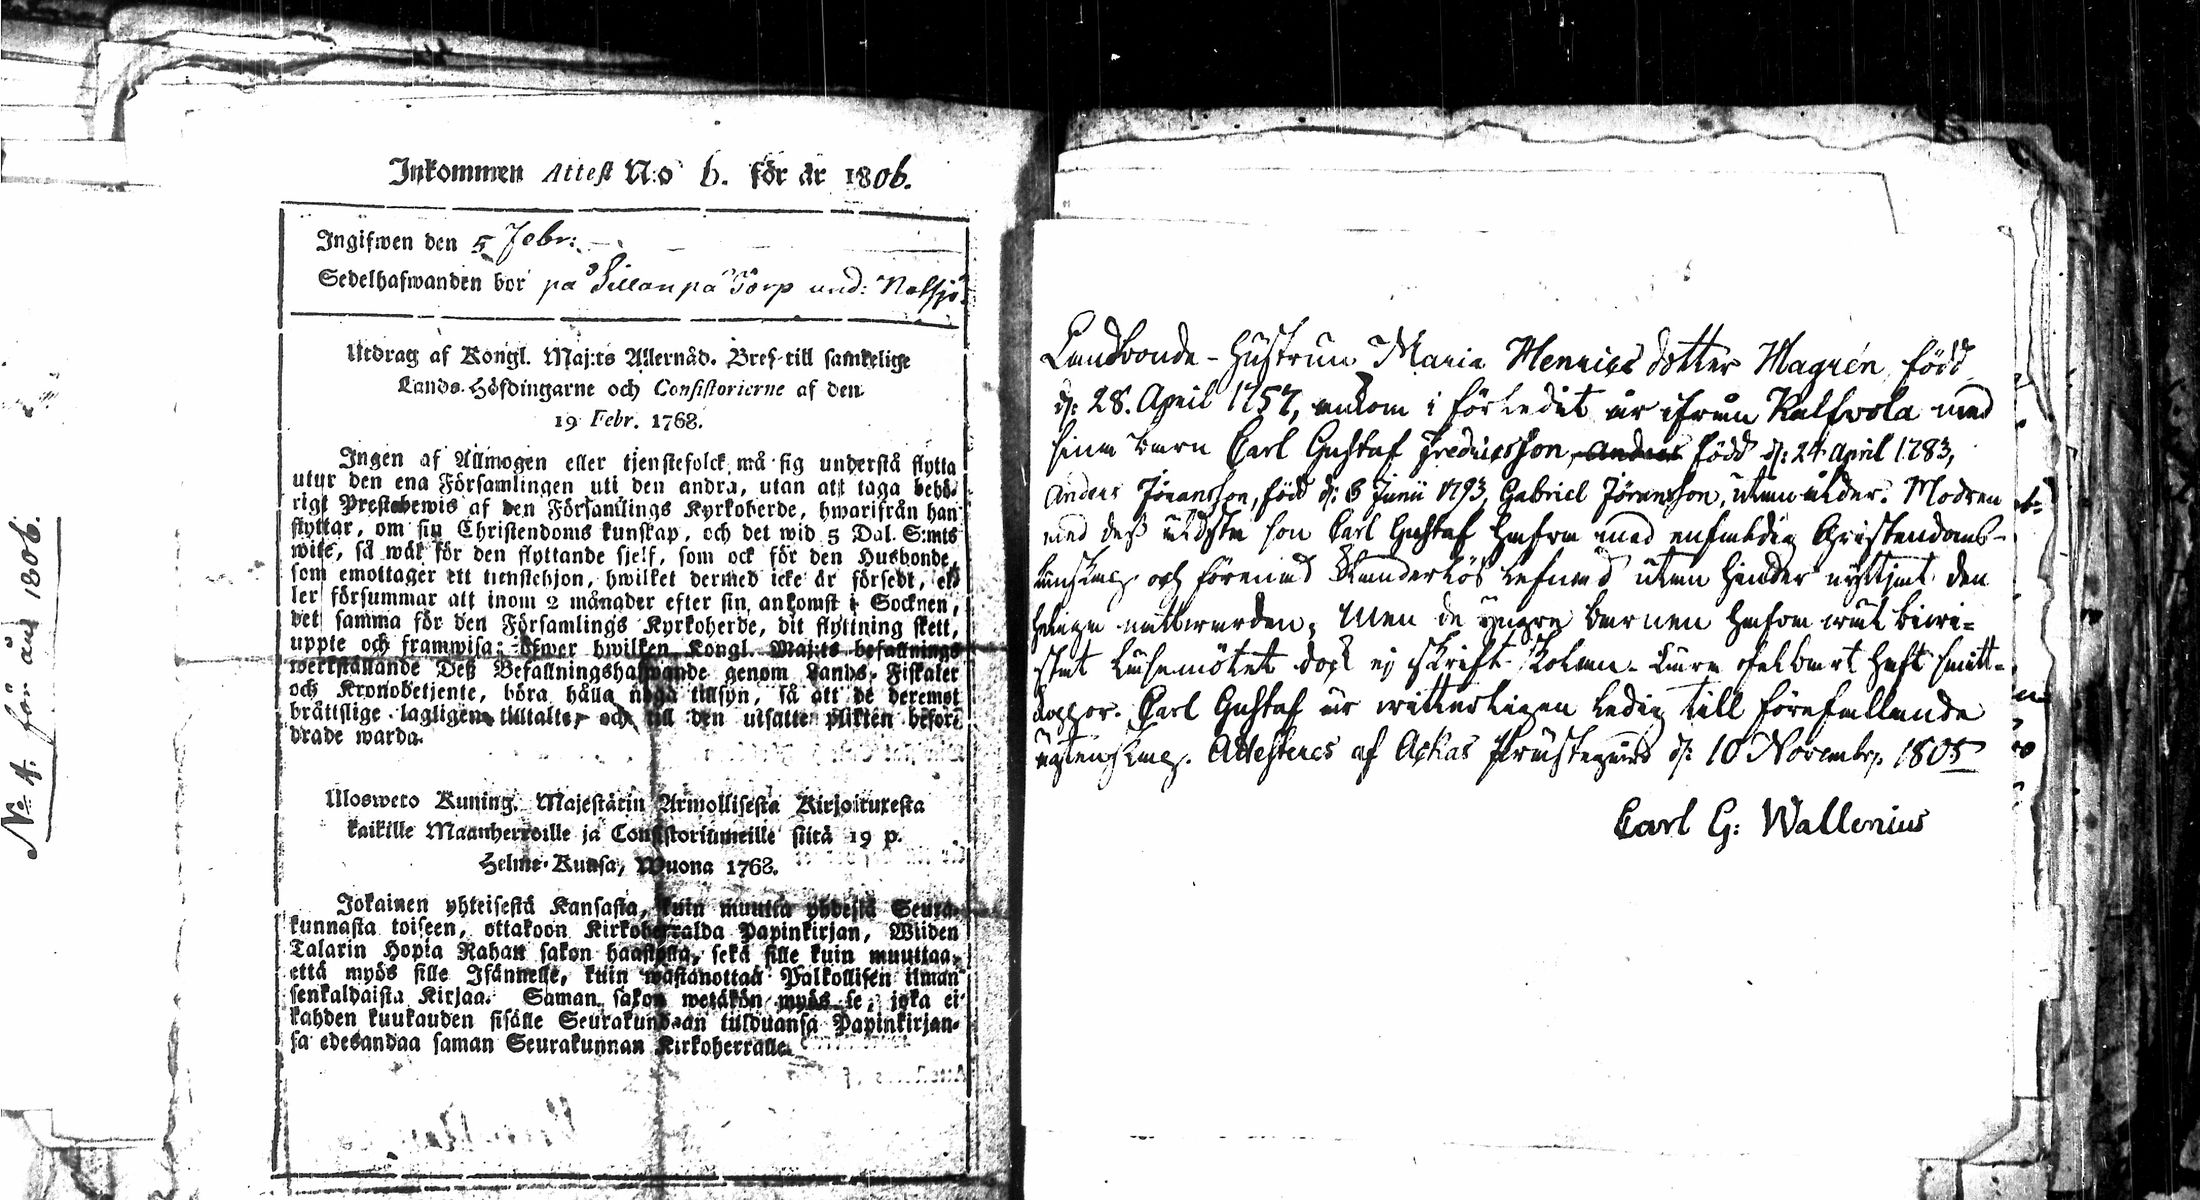 No 4. för år 1806.
Inkommen Attest N:o 6. för år 1806.
Ingifwen den 5 Febr:
Sedelhafwanden bor på Sillanpä Torp und: Nassjö
Utdrag af Kongl. Maj:ts Allernåd. Bref till samtelige
Lands-Höfdingarne och Consistorierne af den
19 Febr. 1768.
Ingen af Allmogen eller tjenstefolck må sig understå flytta
utur den ena Församlingen uti den andra, utan att taga behö-
rigt Prestebewis af den Församlings Kyrkoherde, hwarifrån han
flyttar, om sin Christendoms kunskap, och det wid 5 Dal. S:mts
wite, så wäl för den flyttande sjelf, som ock för den Husbonde,
som emottager ett tienstehjon, hwilket dermed icke är försedt, el-
ler försummar att inom 2 månader efter sin ankomst i Socknen,
det samma för den Församlings Kyrkoherde, dit flyttning skett,
uppte och framwisa; öfwer hwilken Kongl. Maj:ts befallnings
werkställande Deß Befallningshafwande genom Lands-Fiskaler
och Kronobetjente, böra hålla noga tillsyn, så att de deremot
bråttslige lagligen tilltalte, och till den utsatte plikten befor-
drade warda.
Ulosweto Kuning. Majestätin Armollisesta Kirjoituxesta
kaikille Maanherroille ja Consistoriumeille siitä 19 p.
Helme-Kuusa, Wuona 1768.
Jokainen yhteisestä Kansasta, kuin muutta yhdestä Seura-
kunnasta toiseen, ottakoon Kirkoherralda Papinkirjan, Wiiden
Talarin Hopia Rahan sakon haastolla, sekä sille kuin muuttaa,
että myös sille Isännelle, kuin wastanottaa Palkollisen ilman
senkaldaista Kirjaa. Saman sakon wetäkön myös se, joka ei
kahden kuukauden sisälle Seurakundaan tulduansa Papinkirjan-
sa edesandaa saman Seurakunnan Kirkoherralle.
Landbonde-Hustrun Maria Henrics dotter Magnén, född
d: 28. April 1757, ankom i förledit år ifrån Kalfvola med
sina barn Carl Gustaf Fredricsson, Anders född d: 24 April 1783,
Anders Jöransson, född d: 6 Junii 1793, Gabriel Jöransson, utan ålder. Modren
med deß äldste son Carl Gustaf hafva med enfaldig Christendoms-
kunskap och förenad Klanderlös lefnad utan hinder nyttjat den
heliga nattvarden; Men de yngre barnen hafva väl bivi-
stat Läsemötet dock ej skrift-Skolan. Lära ofelbart haft smitt-
koppor. Carl Gustaf är vitterligen ledig till förefallande
ägtenskap. Attesteras af Ackas Prästegård d: 10 Novembr. 1805
Carl G: Wallenius